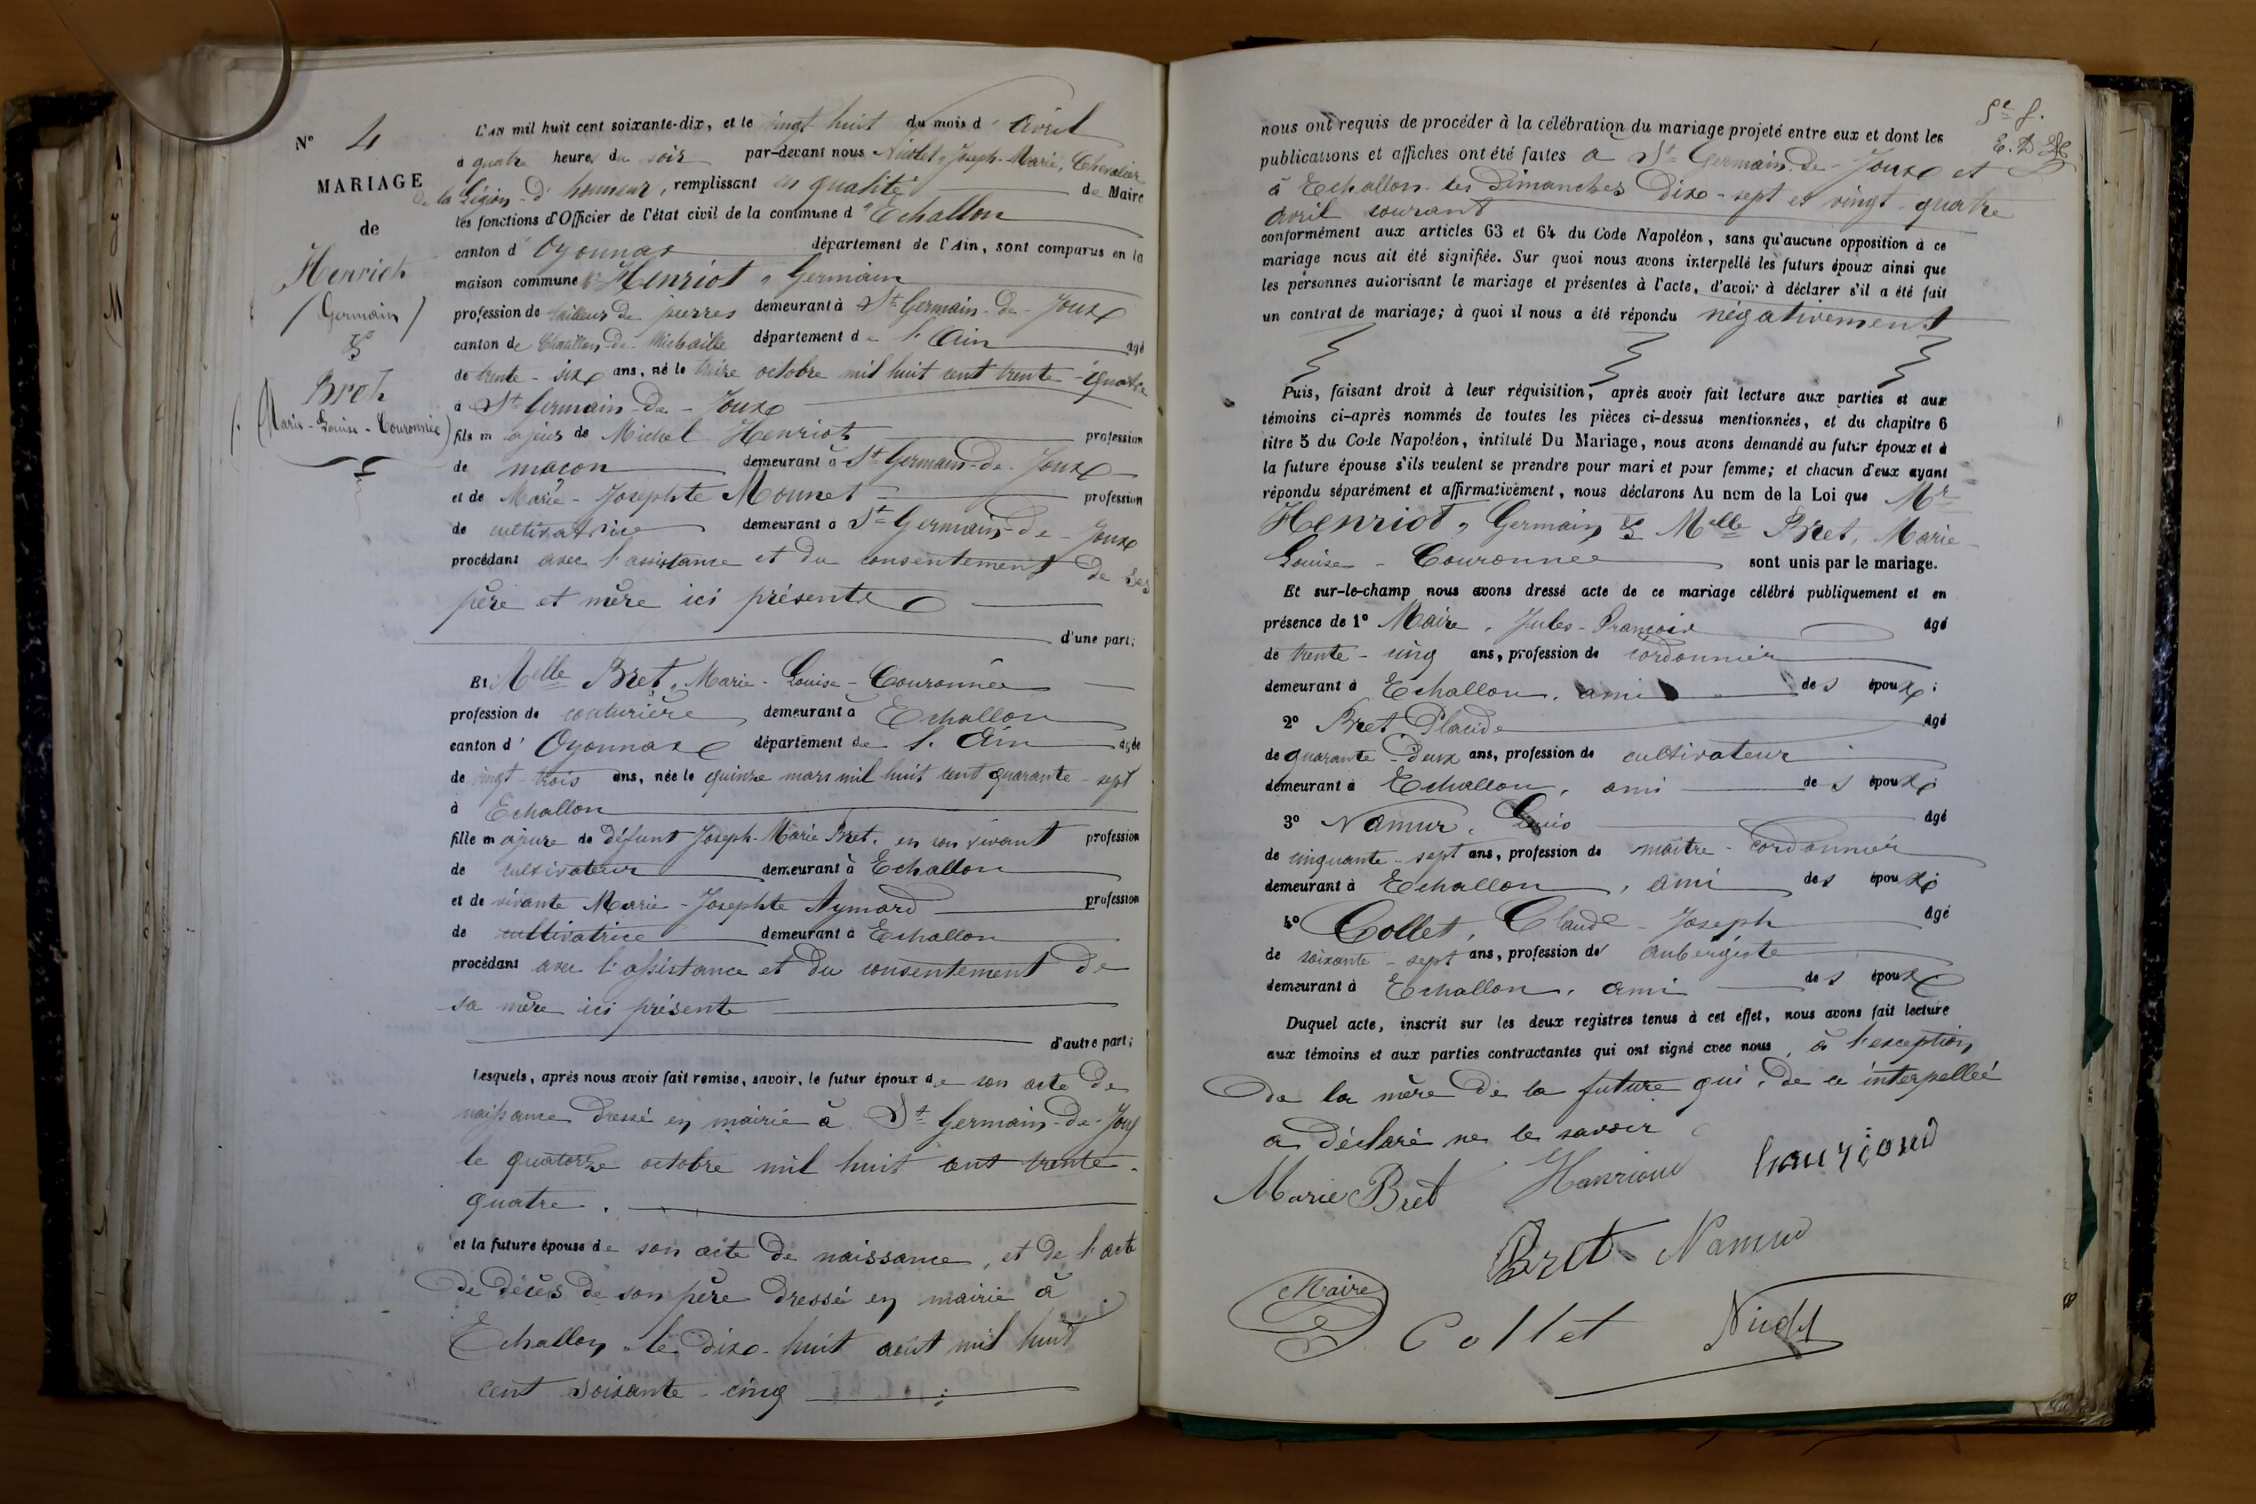 N° 4
MARIAGE
de
Henriot
(Germain)
&
Bret
(Marie-Louise-Couronnée)
L'AN mil huit cent soixante-dix, et le vingt huit du mois d'avril
à quatre heures du soir par-devant nous Nicolet, Joseph-Marie, Chevalier
de la Légion-d'honneur, remplissant en qualité de Maire
les fonctions d'Officier de l'état civil de la commune d'Echallon
canton d'Oyonnax département de l'Ain, sont comparus en la
maison commune Mr Henriot, Germain
profession de tailleur de pierres demeurant à St Germain-de-Joux
canton de Chatillon-de-Michaille département de l'Ain âgé
de trente-six ans, né le treize octobre mil huit cent trente-quatre
à St Germain-de-Joux
fils majeur de Michel Henriot profession
de maçon demeurant à St Germain-de-Joux
et de Marie-Josephte Mounet profession
de cultivatrice demeurant à St Germain-de-Joux
procédant avec l'assistance et du consentement de ses
père et mère ici présents
d'une part;
Et Melle Bret, Marie-Louise-Couronnée
profession de couturière demeurant à Echallon
canton d'Oyonnax département de l'Ain âgée
de vingt-trois ans, née le quinze mars mil huit cent quarante-sept
à Echallon
fille majeure de défunt Joseph-Marie Bret, en son vivant profession
de cultivateur demeurant à Echallon
et de vivante Marie-Josephte Aymard profession
de cultivatrice demeurant à Echallon
procédant avec l'assistance et du consentement de
sa mère ici présente
d'autre part;
Lesquels, après nous avoir fait remise, savoir, le futur époux de son acte de
naissance dressé en mairie à St Germain-de-Joux
le quatorze octobre mil huit cent trente-
quatre.
et la future épouse de son acte de naissance, et de l'acte
de décès de son père dressé en mairie à
Echallon le dix-huit août mil huit
cent soixante-cinq ;
nous ont requis de procéder à la célébration du mariage projeté entre eux et dont les
publications et affiches ont été faites à St Germain-de-Joux et
à Echallon les Dimanches Dix-sept et vingt-quatre
avril courant
conformément aux articles 63 et 64 du Code Napoléon, sans qu'aucune opposition à ce
mariage nous ait été signifiée. Sur quoi nous avons interpellé les futurs époux ainsi que
les personnes autorisant le mariage et présentes à l'acte, d'avoir à déclarer s'il a été fait
un contrat de mariage; à quoi il nous a été répondu négativement
Puis, faisant droit à leur réquisition, après avoir fait lecture aux parties et aux
témoins ci-après nommés de toutes les pièces ci-dessus mentionnées, et du chapitre 6
titre 5 du Code Napoléon, intitulé Du Mariage, nous avons demandé au futur époux et à
la future épouse s'ils veulent se prendre pour mari et pour femme; et chacun d'eux ayant
répondu séparément et affirmativement, nous déclarons Au nom de la Loi que Mr
Henriot, Germain & Melle Bret, Marie-
Louise-Couronnée sont unis par le mariage.
Et sur-le-champ nous avons dressé acte de ce mariage célébré publiquement et en
présence de 1° Maire, Jules-François âgé
de trente-cinq ans, profession de cordonnier
demeurant à Echallon, ami des époux;
2° Bret Placide âgé
de quarante-deux ans, profession de cultivateur
demeurant à Echallon, ami des époux;
3° Namur, Louis âgé
de cinquante-sept ans, profession de maître-cordonnier
demeurant à Echallon, ami des époux;
4° Collet, Claude-Joseph âgé
de soixante-sept ans, profession de aubergiste
demeurant à Echallon, ami des époux
Duquel acte, inscrit sur les deux registres tenus à cet effet, nous avons fait lecture
aux témoins et aux parties contractantes qui ont signé avec nous, à l'exception
de la mère de la future qui, de ce interpellée
a déclaré ne le savoir
Marie Bret Hanrioud hanrioud
Bret Namur
Maire Collet